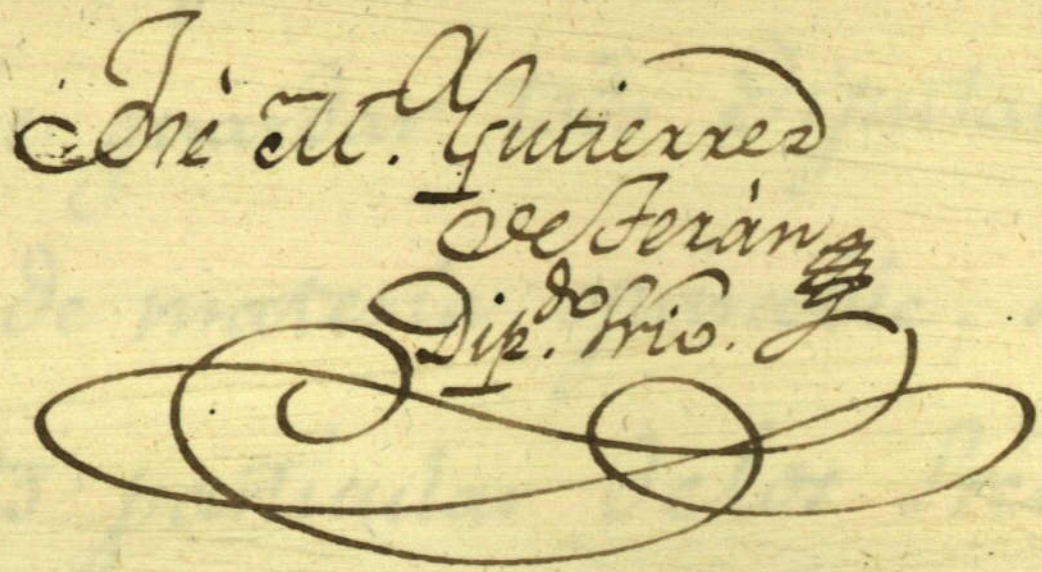 José M.ª Gutierrez
de Terán
Dip.do Srio.